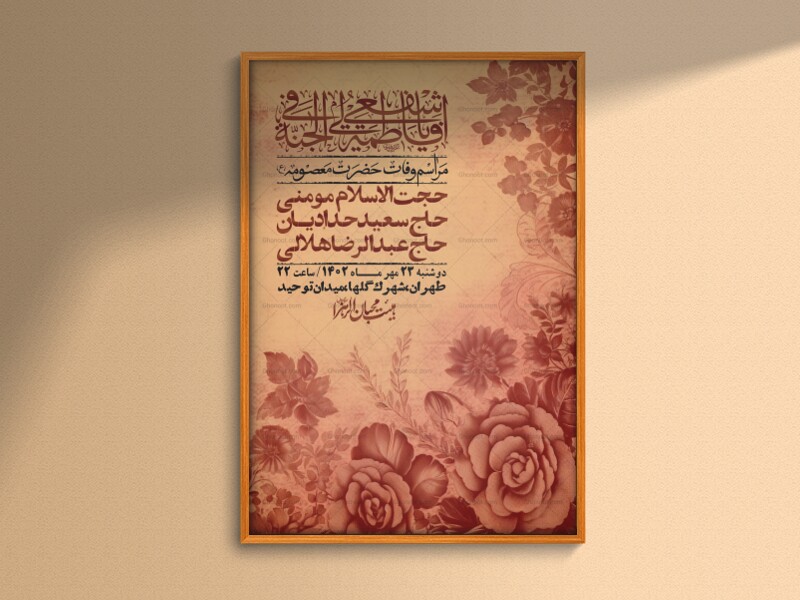 یا فاطمة اشفعی لی فی الجنة
مراسم وفات حضرت معصومه (س)
حجت الاسلام مومنی
حاج سعید حدادیان
حاج عبدالرضا هلالی
دوشنبه ۲۳ مهر ماه ۱۴۰۲ / ساعت ۲۲
طهران، شهرک گلها، میدان توحید
هیئت محبان الزهرا